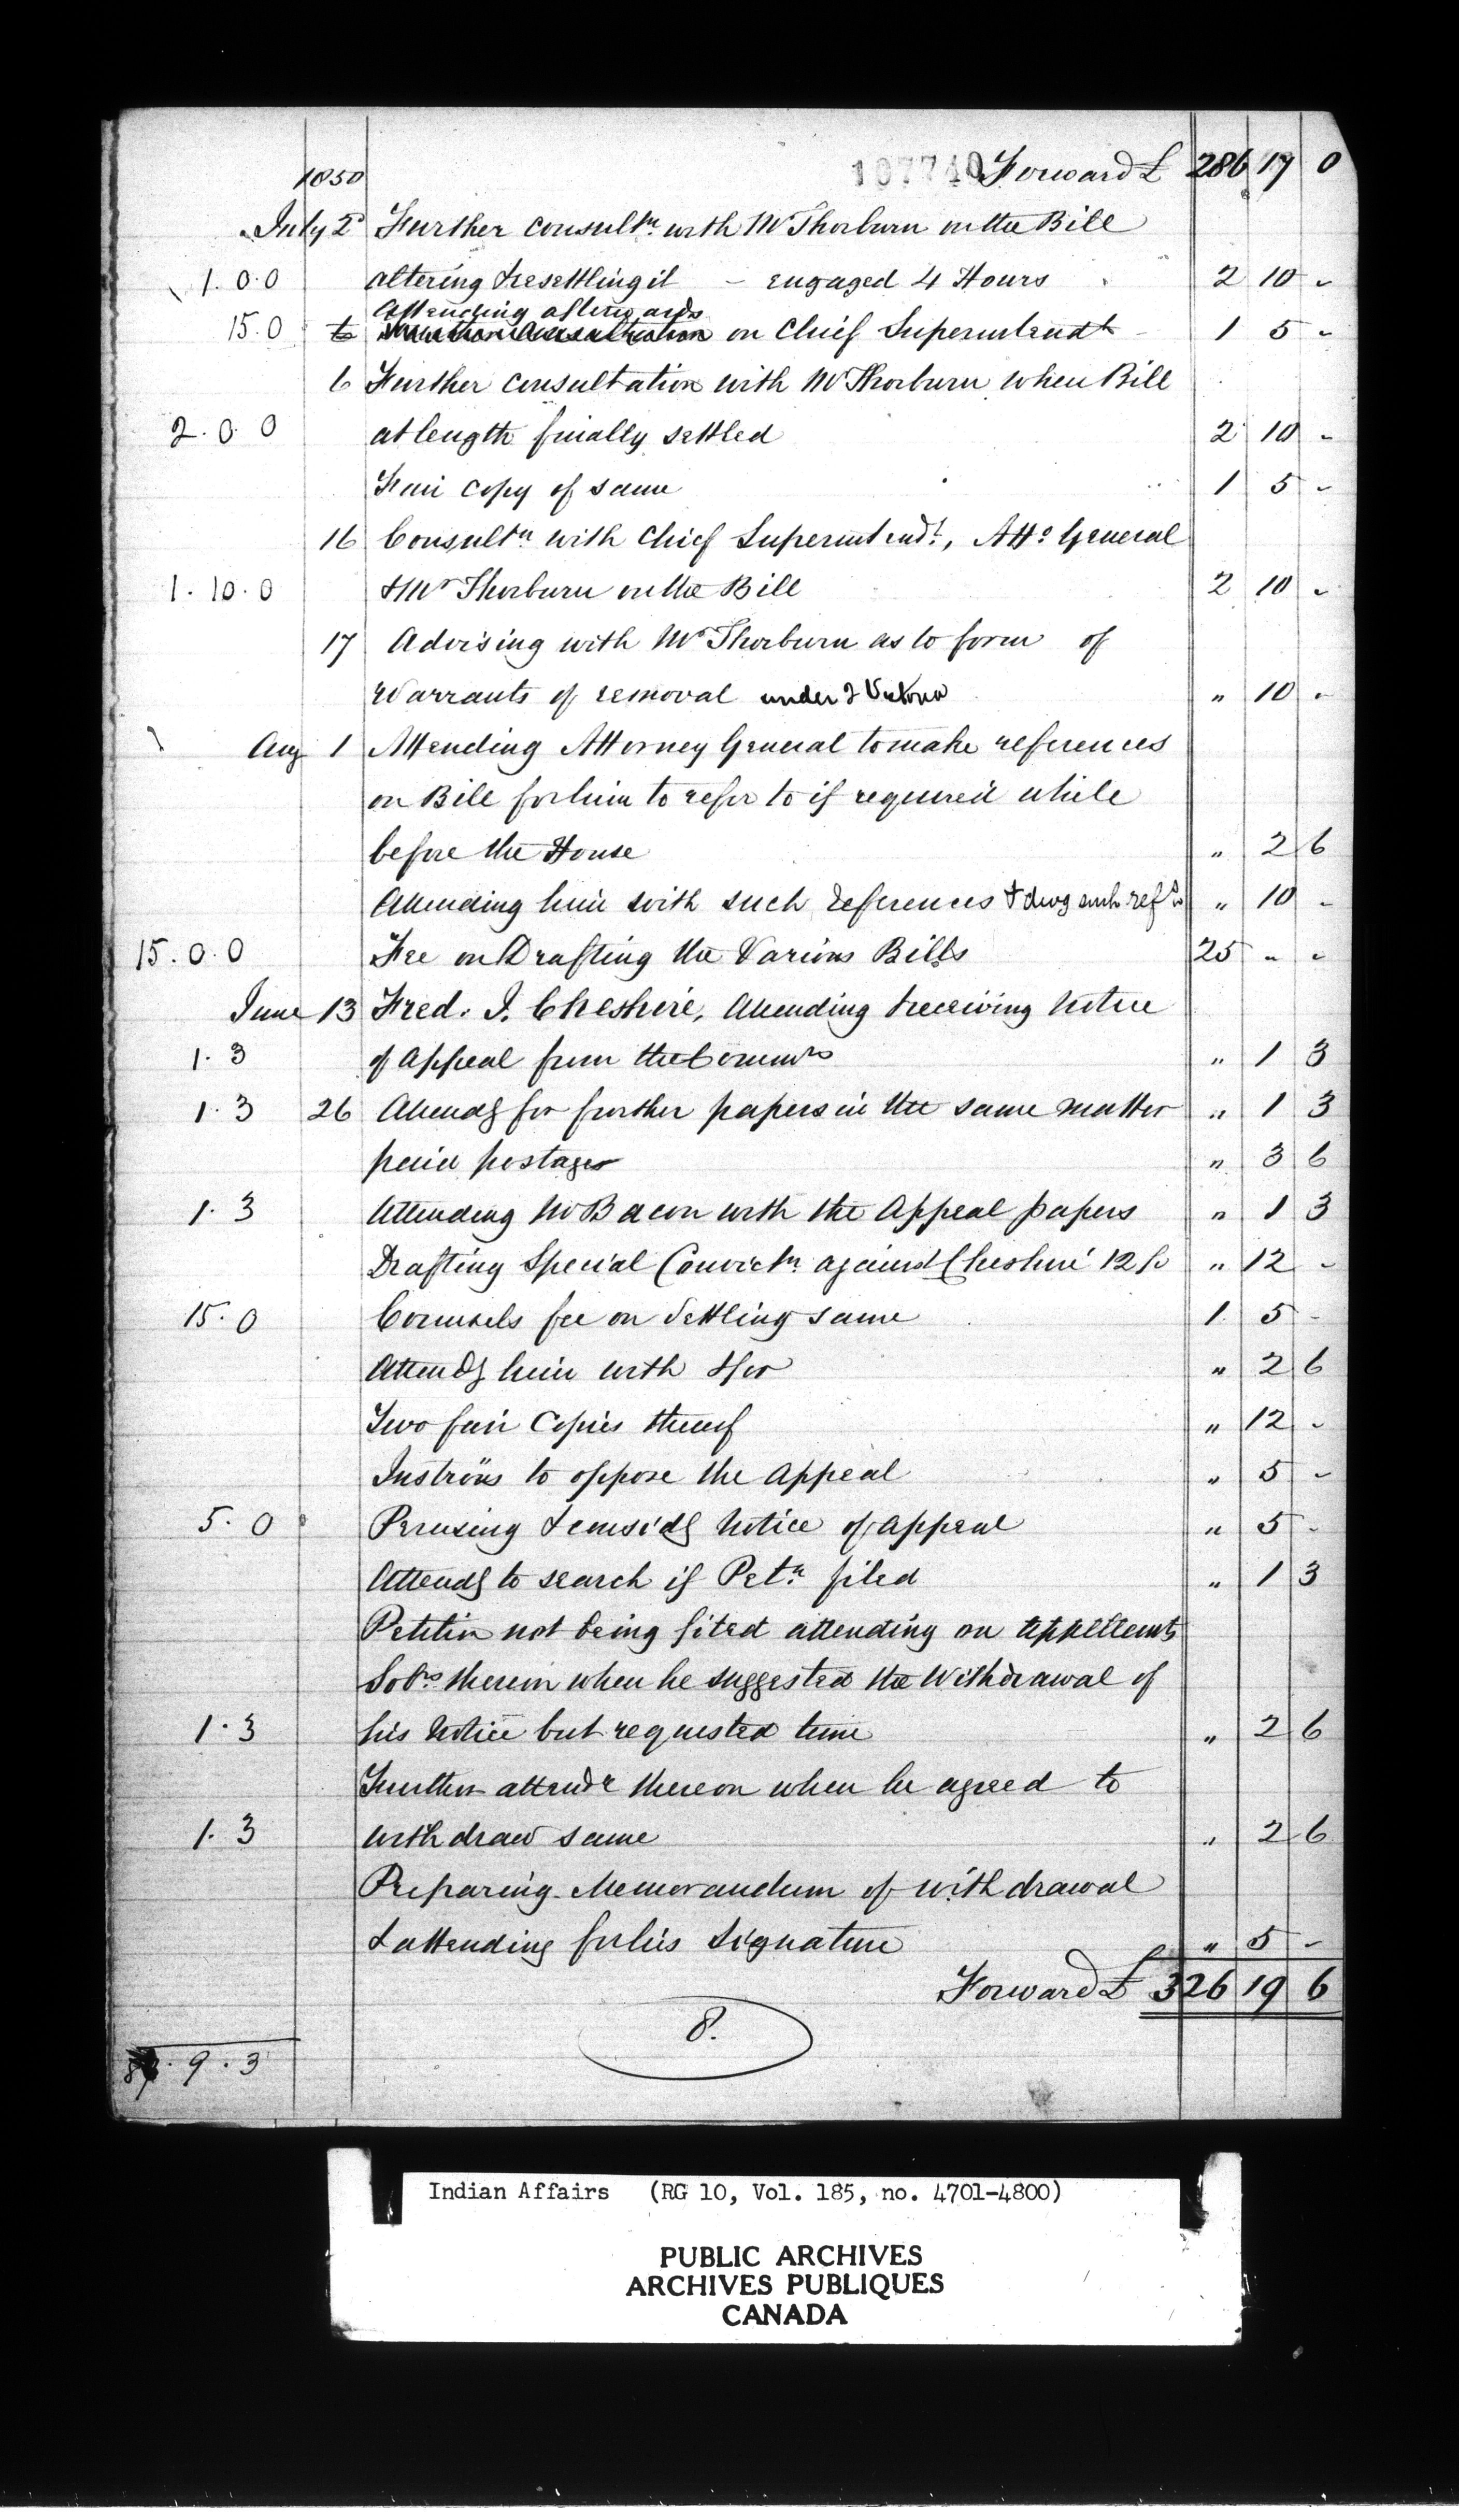 1850 107740 Forward £ 286 17 0
July 2 Further consultn. with Mr Thorburn on the Bill
1. 0. 0 altering & resettling it – engaged 4 Hours 2 10 -
Attending afterwards
15. 0 on Chief Superintendt - 1 5 -
6 Further consultation with Mr Thorburn when Bill
2. 0. 0 at length finally settled 2 10 -
Fair copy of same 1 5 -
16 Consultn. with Chief Superintendt., Atty General
1. 10. 0 & Mr Thorburn on the Bill 2 10 -
17 Advising with Mr Thorburn as to form of
Warrants of removal under 2 Victoria " 10 -
Aug 1 Attending Attorney General to make references
on Bill for him to refer to if required while
before the House " 2 6
Attending him with such references & dwg such refs " 10 -
15. 0. 0 Fee on Drafting the Various Bills 25 " -
June 13 Fred. J. Cheshire, Attending & receiving Notice
1. 3 of Appeal from the Commrs " 1 3
1. 3 26 Attendg for further papers in the same matter " 1 3
paid postages " 3 6
1. 3 Attending Mr Bacon with the Appeal papers " 1 3
Drafting Special Convictn. against Cheshire 12 fo " 12 -
15. 0 Counsels fee on settling same 1 5 -
Attendg him with & for " 2 6
Two fair Copies thereof " 12 -
Instrons to oppose the Appeal " 5 -
5. 0 Perusing & considg Notice of Appeal " 5 -
Attendg to search if Petn. filed " 1 3
Petition not being filed attending on Appellants
Solrs therein when he suggested the Withdrawal of
1. 3 his Notice but requested time " 2 6
Further attendce thereon when he agreed to
1. 3 withdraw same " 2 6
Preparing Memorandum of withdrawal
& attending for his signature " 5 -
Forward £ 326 19 6
8.
. 9. 3
Indian Affairs (RG 10, Vol. 185, no. 4701-4800)
PUBLIC ARCHIVES
ARCHIVES PUBLIQUES
CANADA